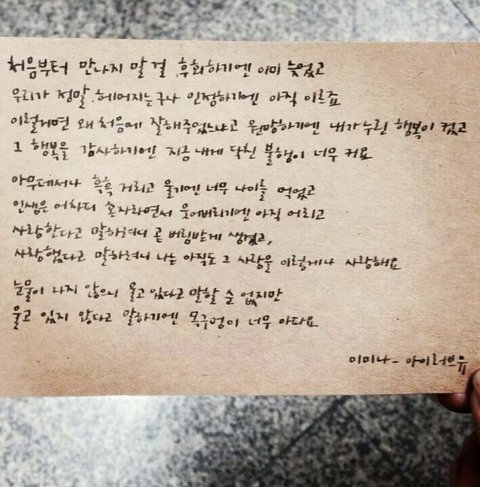 처음부터 만나지 말 걸 후회하기엔 이미 늦었고
우리가 정말. 헤어지는구나 인정하기엔 아직 이르죠
이럴거면 왜 처음에 잘해주었느냐고 원망하기엔 내가 누린 행복이 컸고
그 행복을 감사하기엔 지금 내게 닥친 불행이 너무 커요
아무데서나 흑흑 거리고 울기엔 너무 나이를 먹었고
인생은 어차피 혼자라면서 웃어버리기엔 아직 어리고
사랑한다고 말하려니 곧 버림받게 생겼고,
사랑했다고 말하려니 나는 아직도 그 사람을 이렇게나 사랑해요
눈물이 나지 않으니 울고 있다고 말할 순 없지만
울고 있지 않다고 말하기엔 목구멍이 너무 아파요
이미나 - 아이러브유